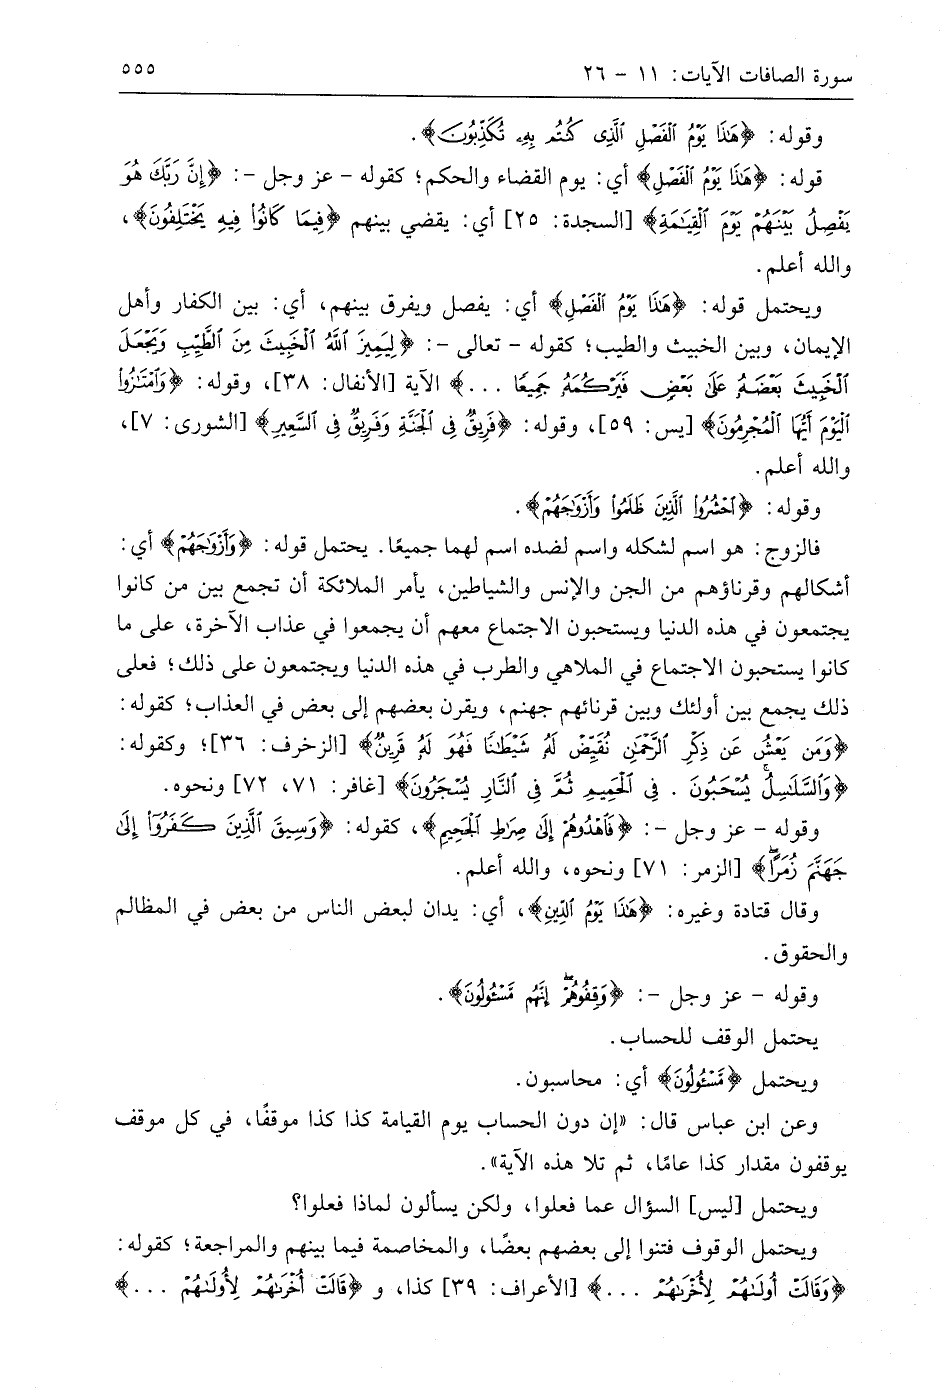 سورة الصافات الآيات: ١١ - ٢٦ ٥٥٥
وقوله: ﴿هَٰذَا يَوْمُ ٱلْفَصْلِ ٱلَّذِى كُنتُم بِهِۦ تُكَذِّبُونَ﴾.
قوله: ﴿هَٰذَا يَوْمُ ٱلْفَصْلِ﴾ أي: يوم القضاء والحكم؛ كقوله - عز وجل -: ﴿إِنَّ رَبَّكَ هُوَ
يَفْصِلُ بَيْنَهُمْ يَوْمَ ٱلْقِيَٰمَةِ﴾ [السجدة: ٢٥] أي: يقضي بينهم ﴿فِيمَا كَانُوا۟ فِيهِ يَخْتَلِفُونَ﴾،
والله أعلم.
ويحتمل قوله: ﴿هَٰذَا يَوْمُ ٱلْفَصْلِ﴾ أي: يفصل ويفرق بينهم، أي: بين الكفار وأهل
الإيمان، وبين الخبيث والطيب؛ كقوله - تعالى -: ﴿لِيَمِيزَ ٱللَّهُ ٱلْخَبِيثَ مِنَ ٱلطَّيِّبِ وَيَجْعَلَ
ٱلْخَبِيثَ بَعْضَهُۥ عَلَىٰ بَعْضٍ فَيَرْكُمَهُۥ جَمِيعًا ...﴾ الآية [الأنفال: ٣٨]، وقوله: ﴿وَٱمْتَٰزُوا۟
ٱلْيَوْمَ أَيُّهَا ٱلْمُجْرِمُونَ﴾ [يس: ٥٩]، وقوله: ﴿فَرِيقٌ فِى ٱلْجَنَّةِ وَفَرِيقٌ فِى ٱلسَّعِيرِ﴾ [الشورى: ٧]،
والله أعلم.
وقوله: ﴿ٱحْشُرُوا۟ ٱلَّذِينَ ظَلَمُوا۟ وَأَزْوَٰجَهُمْ﴾.
فالزوج: هو اسم لشكله واسم لضده اسم لهما جميعًا. يحتمل قوله: ﴿وَأَزْوَٰجَهُمْ﴾ أي:
أشكالهم وقرناؤهم من الجن والإنس والشياطين، يأمر الملائكة أن تجمع بين من كانوا
يجتمعون في هذه الدنيا ويستحبون الاجتماع معهم أن يجمعوا في عذاب الآخرة، على ما
كانوا يستحبون الاجتماع في الملاهي والطرب في هذه الدنيا ويجتمعون على ذلك؛ فعلى
ذلك يجمع بين أولئك وبين قرنائهم جهنم، ويقرن بعضهم إلى بعض في العذاب؛ كقوله:
﴿وَمَن يَعْشُ عَن ذِكْرِ ٱلرَّحْمَٰنِ نُقَيِّضْ لَهُۥ شَيْطَٰنًا فَهُوَ لَهُۥ قَرِينٌ﴾ [الزخرف: ٣٦]؛ وكقوله:
﴿وَٱلسَّلَٰسِلُ يُسْحَبُونَ . فِى ٱلْحَمِيمِ ثُمَّ فِى ٱلنَّارِ يُسْجَرُونَ﴾ [غافر: ٧١، ٧٢] ونحوه.
وقوله - عز وجل -: ﴿فَٱهْدُوهُمْ إِلَىٰ صِرَٰطِ ٱلْجَحِيمِ﴾، كقوله: ﴿وَسِيقَ ٱلَّذِينَ كَفَرُوٓا۟ إِلَىٰ
جَهَنَّمَ زُمَرًا﴾ [الزمر: ٧١] ونحوه، والله أعلم.
وقال قتادة وغيره: ﴿هَٰذَا يَوْمُ ٱلدِّينِ﴾، أي: يدان لبعض الناس من بعض في المظالم
والحقوق.
وقوله - عز وجل -: ﴿وَقِفُوهُمْ إِنَّهُم مَّسْـُٔولُونَ﴾.
يحتمل الوقف للحساب.
ويحتمل ﴿مَّسْـُٔولُونَ﴾ أي: محاسبون.
وعن ابن عباس قال: «إن دون الحساب يوم القيامة كذا كذا موقفًا، في كل موقف
يوقفون مقدار كذا عامًا، ثم تلا هذه الآية».
ويحتمل [ليس] السؤال عما فعلوا، ولكن يسألون لماذا فعلوا؟
ويحتمل الوقوف فتنوا إلى بعضهم بعضًا، والمخاصمة فيما بينهم والمراجعة؛ كقوله:
﴿وَقَالَتْ أُولَىٰهُمْ لِأُخْرَىٰهُمْ ...﴾ [الأعراف: ٣٩] كذا، و ﴿قَالَتْ أُخْرَىٰهُمْ لِأُولَىٰهُمْ ...﴾